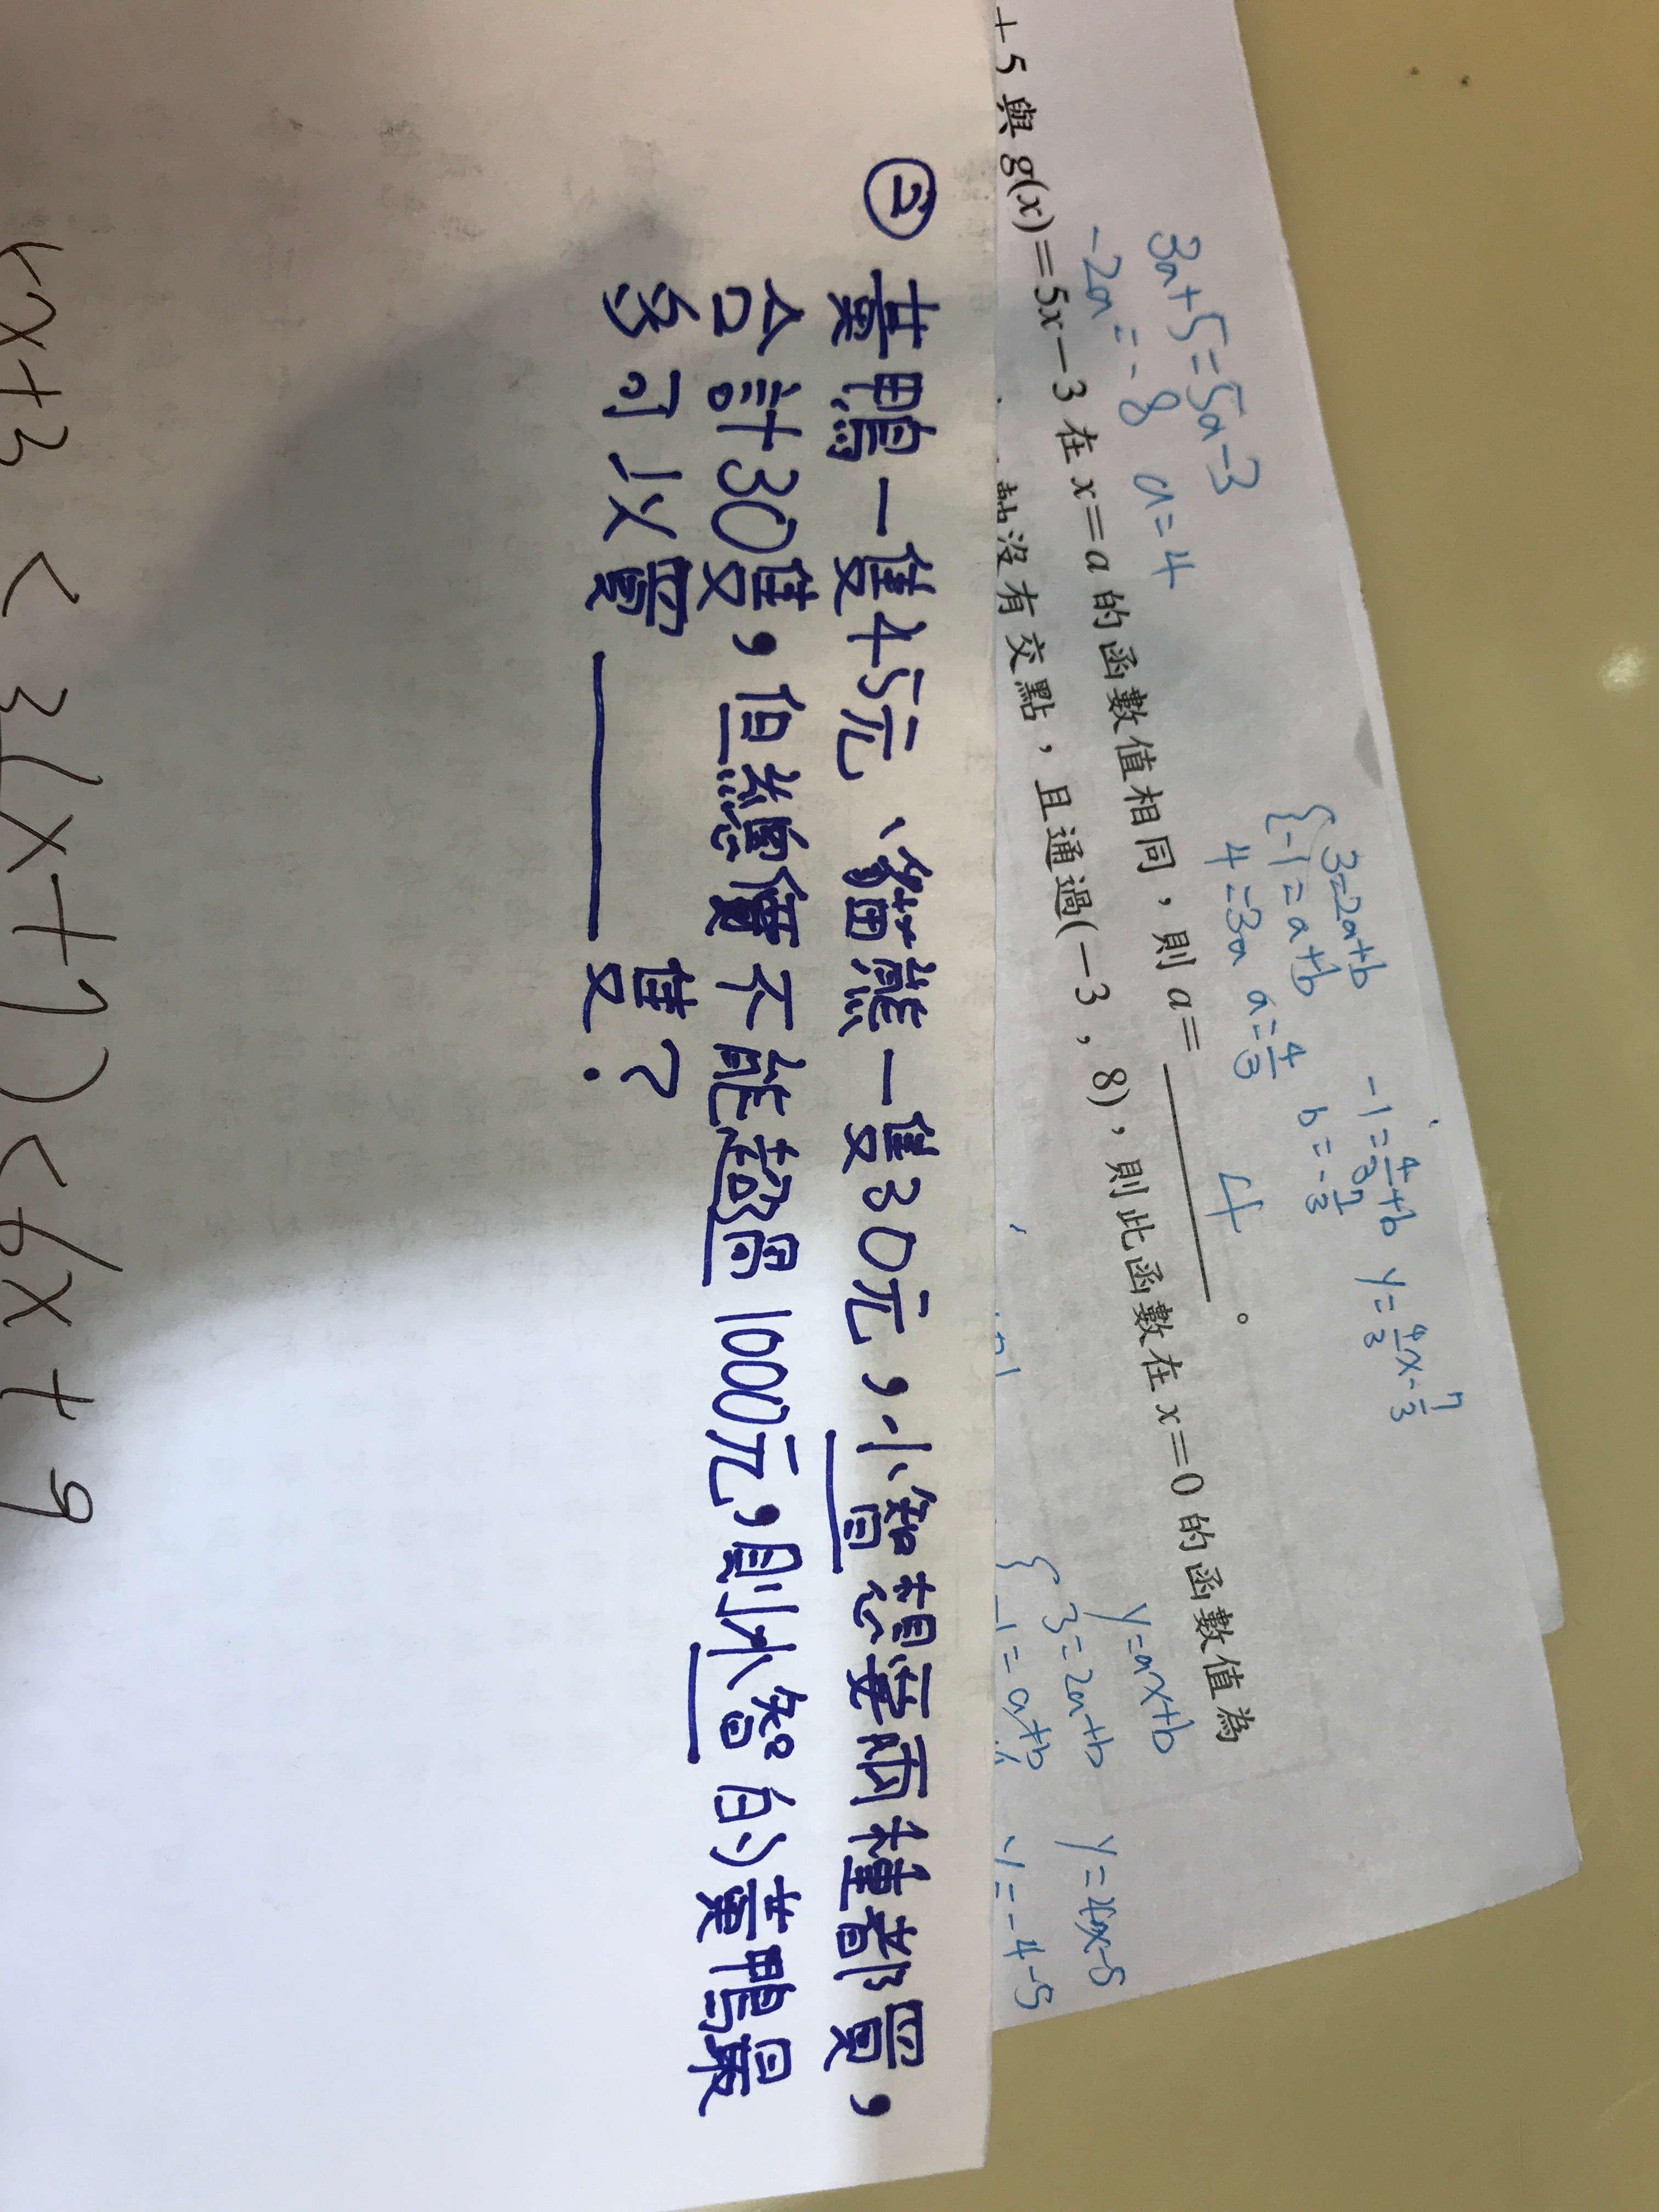 3a+5=5a-3
-2a=-8 a=4
+5 與 g(x)=5x-3 在 x=a 的函數值相同,則 a= 4 。
{3=2a+b
-1=a+b
4=3a a=4/3
-1=4/3+b
b=-7/3
y=4/3x-7/3
沒有交點,且通過(-3,8),則此函數在 x=0 的函數值為
y=ax+b
{3=2a+b
-1=a+b
y=4x-5
② 黃鴨一隻45元、貓熊一隻30元,小智想要兩種都買,
合計30隻,但總價不能超過1000元,則小智的黃鴨最
多可以買______隻?
x+3<3(x+1)<6x+9